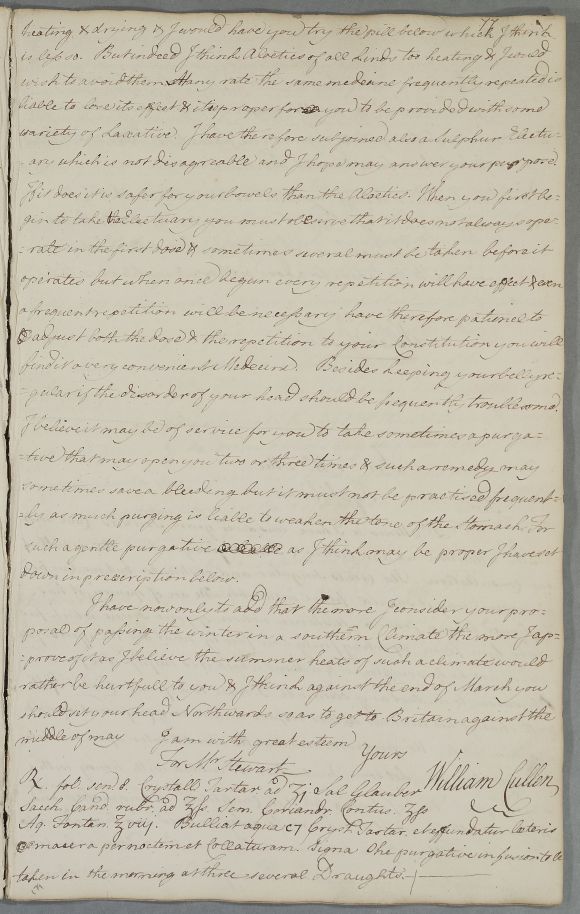 77
heating & drying & I would have you try the pill below which I think
is less so. But indeed I think Aloetics of all kinds too heating & I would
wish to avoid them. At any rate the same medicine frequently repeated is
liable to lose its effect & it is proper for you to be provided with some
variety of Laxative. I have therefore subjoined also a Sulphur Electu=
=ary which is not disagreable and I hope may answer your purpose.
If it does it is safer for your bowels than the Aloetics. When you first be=
gin to take the Electuary you must observe that it does not always ope=
=rate in the first dose & sometimes several must be taken before it
operates but when once begun every repetition will have effect & even
a frequent repetition will be necessary have therefore patience to
adjust both the dose & the repetition to your Constitution you will
find it a very convenient Medecine. Besides keeping your belly re=
=gular if the disorder of your head should be frequently troublesome,
I believe it may be of service for you to take sometimes a purga=
=tive that may open you two or three times & such a remedy may
sometimes save a bleeding but it must not be practised frequent=
=ly as much purging is liable to weaken the tone of the Stomach. For
such a gentle purgative as I think may be proper I have set
down in prescription below.
I have now only to add that the more I consider your pro=
=posal of passing the winter in a southern Climate the more I ap=
=prove of it as I believe the summer heats of such a climate would
rather be hurtfull to you & I think against the end of March you
should set your head Northwards so as to get to Britain against the
middle of may I am with great esteem
Yours
For Mr. Stewart William Cullen
℞. fol. sen 8. Crystall Tartar. ad ʒi Sal Glauber
Sacch. Cand. rubr. ad ℥ſs Sem. Coriandr. Contus. ʒſs
Aq. Fontan. ℥viij. Bulliat aqua c Cryst. Tartar. et effundatur cæteris
macera per noctem et Collaturam. Signa The purgative infusion to be
taken in the morning at three several Draughts.